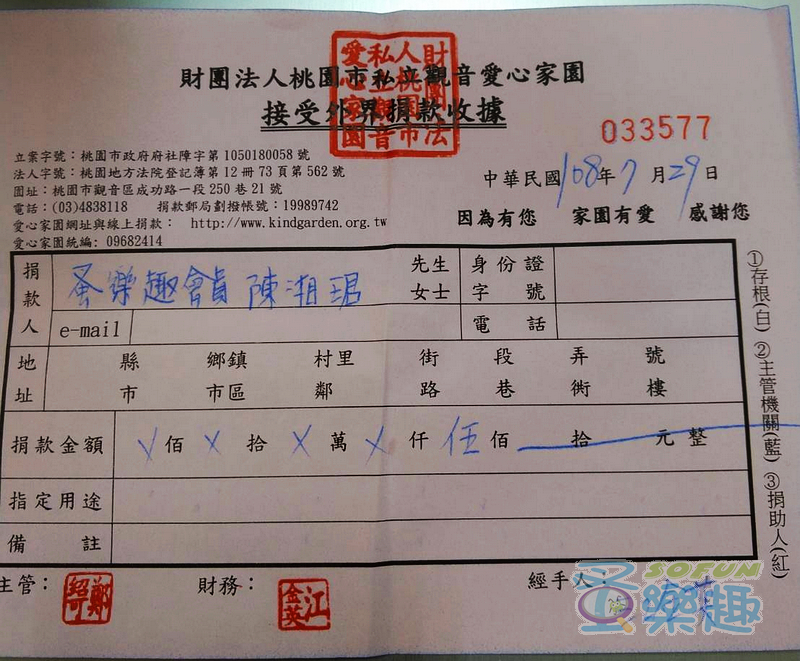 財團法人桃園市私立觀音愛心家園
接受外界捐款收據
財團法人桃園市私立觀音愛心家園
033577
立案字號：桃園市政府府社障字第 1050180058 號
法人字號：桃園地方法院登記簿第 12 冊 73 頁第 562 號
園址：桃園市觀音區成功路一段 250 巷 21 號
電話：(03)4838118 捐款郵局劃撥帳號：19989742
愛心家園網址與線上捐款： http://www.kindgarden.org.tw
愛心家園統編: 09682414
中華民國 108 年 7 月 29 日
因為有您 家園有愛 感謝您
捐款人 蚤樂趣會員 陳湘琚 先生 女士 身份證字號
e-mail 電話
地址 縣市 鄉鎮市區 村里鄰 街路 段巷 弄衖 號樓
捐款金額 X 佰 X 拾 X 萬 X 仟 伍 佰 拾 元整
指定用途
備註
①存根(白) ②主管機關(藍) ③捐助人(紅)
主管： 財務： 江金英 經手人：
SOFUN
蚤樂趣